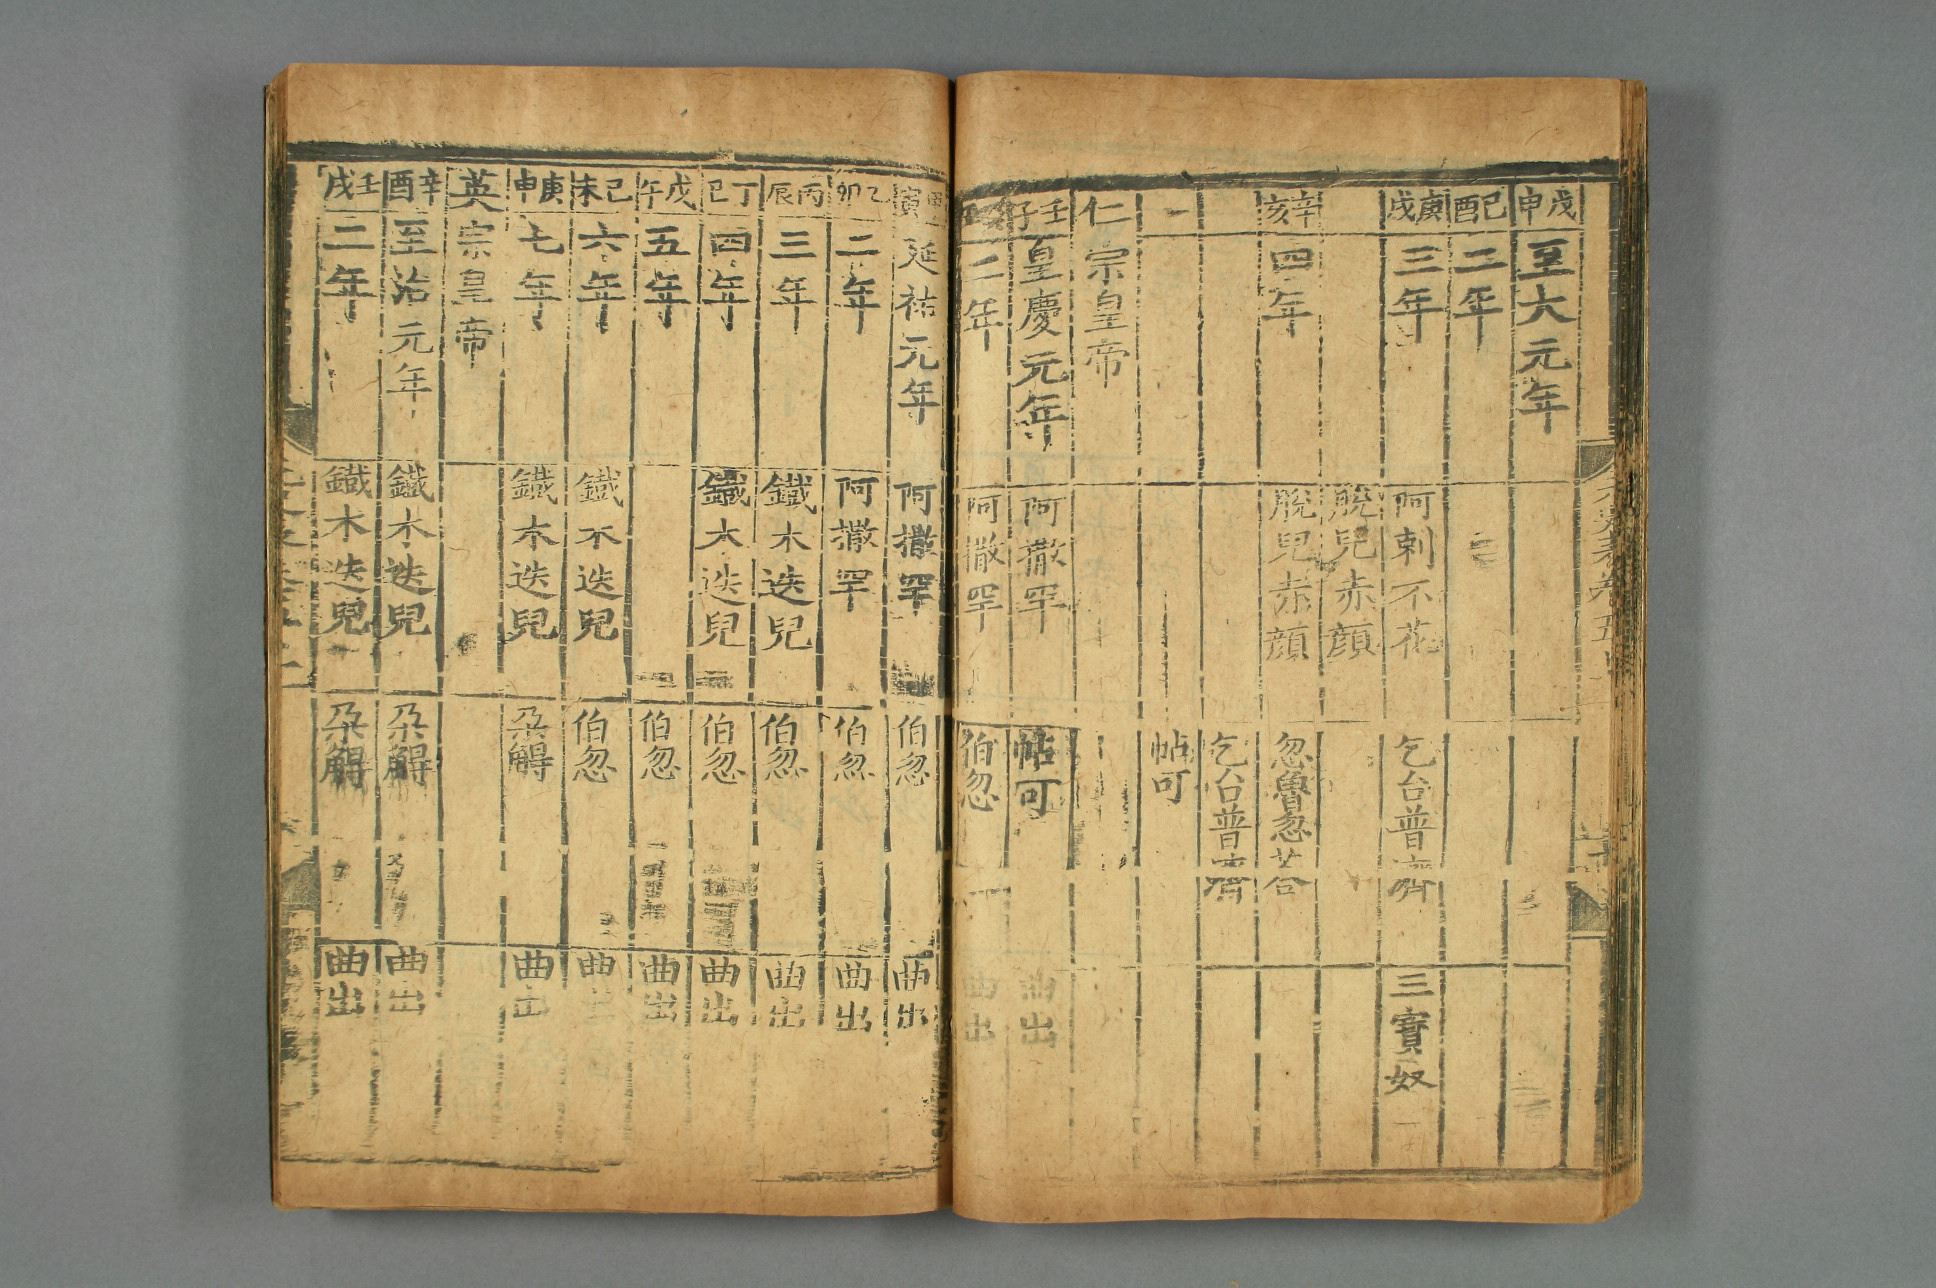 戊申 至大元年
己酉 二年
庚戌 三年 阿剌不花 乞台普濟 三寶奴
脫兒赤顏
辛亥 四年 脫兒赤顏 忽魯忽荅
乞台普濟
帖可
仁宗皇帝
壬子 皇慶元年 阿撒罕 帖可 曲出
二年 阿撒罕 伯忽 曲出
寅 延祐元年 阿撒罕 伯忽 曲出
乙卯 二年 阿撒罕 伯忽 曲出
丙辰 三年 鐵木迭兒 伯忽 曲出
丁巳 四年 鐵木迭兒 伯忽 曲出
戊午 五年 伯忽 曲出
己未 六年 鐵木迭兒 伯忽 曲出
庚申 七年 鐵木迭兒 朶䚟 曲出
英宗皇帝
辛酉 至治元年 鐵木迭兒 朶䚟 曲出
壬戌 二年 鐵木迭兒 朶䚟 曲出